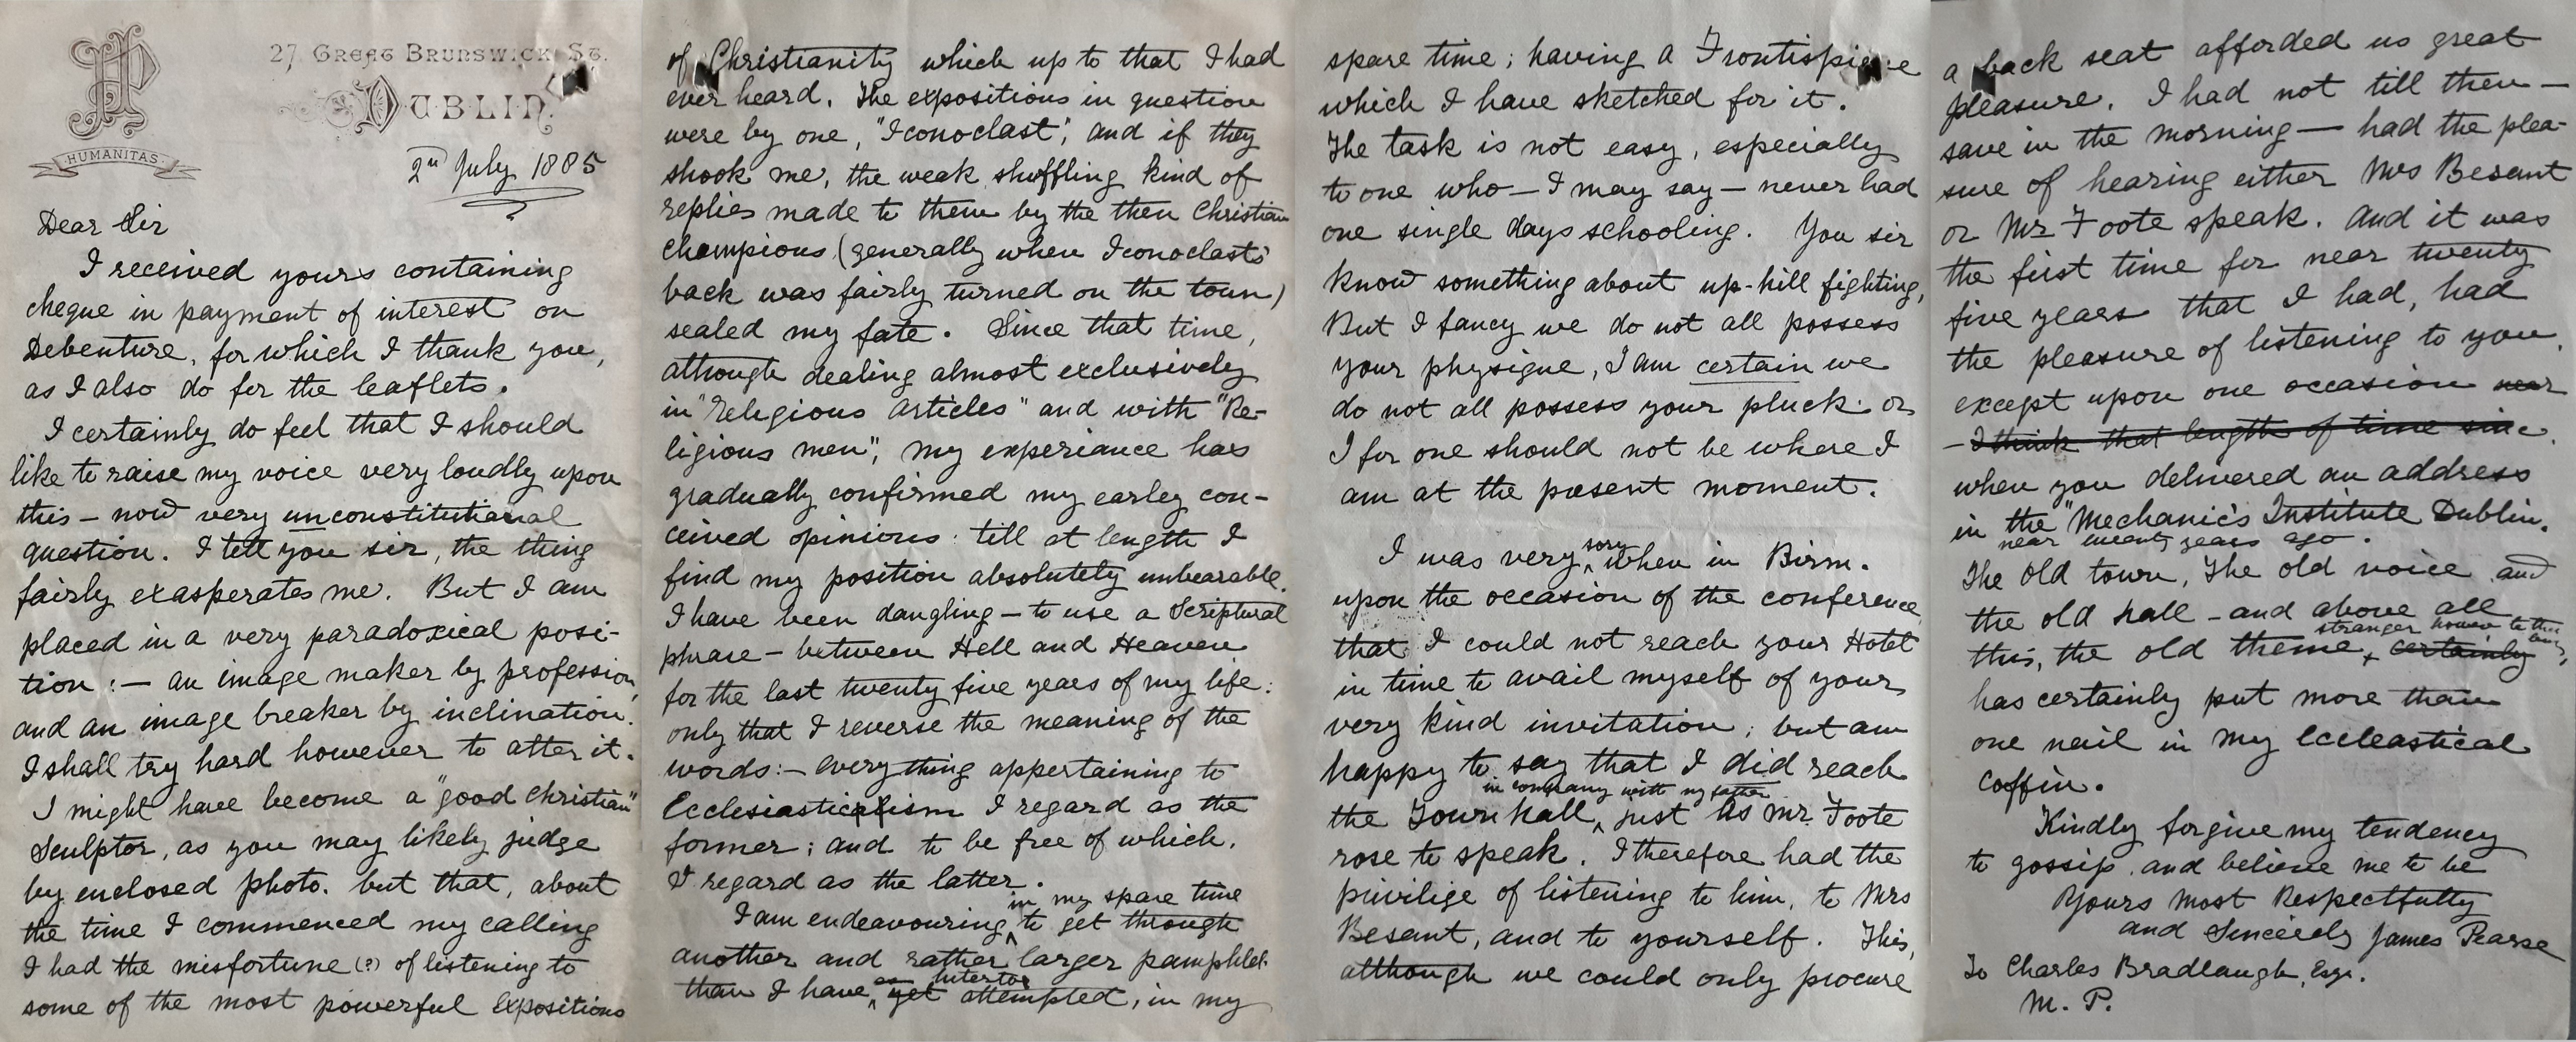 27 Great Brunswick St.
Dublin
HUMANITAS
2nd July 1885
Dear Sir
I received yours containing
cheque in payment of interest on
Debenture, for which I thank you,
as I also do for the leaflets.
I certainly do feel that I should
like to raise my voice very loudly upon
this – now very unconstitutional
question. I tell you sir, the thing
fairly exasperates me. But I am
placed in a very paradoxical posi-
tion :– an image maker by profession,
and an image breaker by inclination.
I shall try hard however to alter it.
I might have become a "good Christian"
Sculptor, as you may likely judge
by enclosed photo. but that, about
the time I commenced my calling
I had the misfortune (?) of listening to
some of the most powerful expositions
of Christianity which up to that I had
ever heard. The expositions in question
were by one, "Iconoclast", and if they
shook me, the weak shuffling kind of
replies made to them by the then Christian
champions (generally when Iconoclasts
back was fairly turned on the town)
sealed my fate. Since that time,
although dealing almost exclusively
in "religious articles" and with "Re-
ligious men", my experiance has
gradually confirmed my earley con-
ceived opinions: till at length I
find my position absolutely unbearable.
I have been dangling – to use a Scriptural
phrase – between Hell and Heaven
for the last twenty five years of my life:
only that I reverse the meaning of the
words:– everything appertaining to
Ecclesiasticism I regard as the
former; and to be free of which,
I regard as the latter.
in my spare time
I am endeavouring to get through
another and rather larger pamphlet
than I have as yet attempted, in my
spare time; having a Frontispiece
which I have sketched for it.
The task is not easy, especially
to one who – I may say – never had
one single days schooling. You sir
know something about up-hill fighting,
But I fancy we do not all possess
your physique, I am certain we
do not all possess your pluck: or
I for one should not be where I
am at the present moment.
I was very sorry when in Birm.
upon the occasion of the conference
that I could not reach your Hotel
in time to avail myself of your
very kind invitation; but am
happy to say that I did reach
in company with my father
the Town hall, just as Mr. Foote
rose to speak. I therefore had the
privilige of listening to him, to Mrs
Besant, and to yourself. This,
although we could only procure
a back seat afforded us great
pleasure. I had not till then –
save in the morning – had the plea-
sure of hearing either Mrs Besant
or Mr Foote speak. And it was
the first time for near twenty
five years that I had, had
the pleasure of listening to you.
except upon one occasion near
– I think that length of time since.
when you delivered an address
in the "Mechanic's Institute Dublin.
near twenty years ago.
The old town, The old voice and
the old hall – and above all
stranger however to the
this, the old theme, certainly
has certainly put more than
one nail in my Eccleastical
coffin.
Kindly forgive my tendency
to gossip, and believe me to be
Yours most Respectfully
and Sincerely James Pearse
To Charles Bradlaugh, Esqr.
M. P.